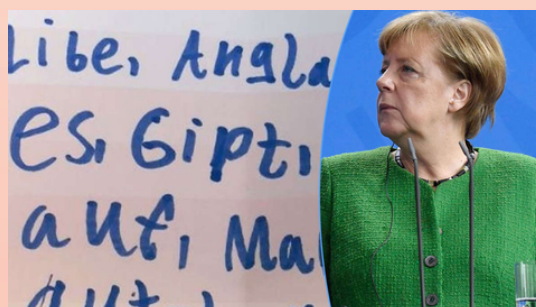 Libe, Angla
es, Gipt,
auf, Ma